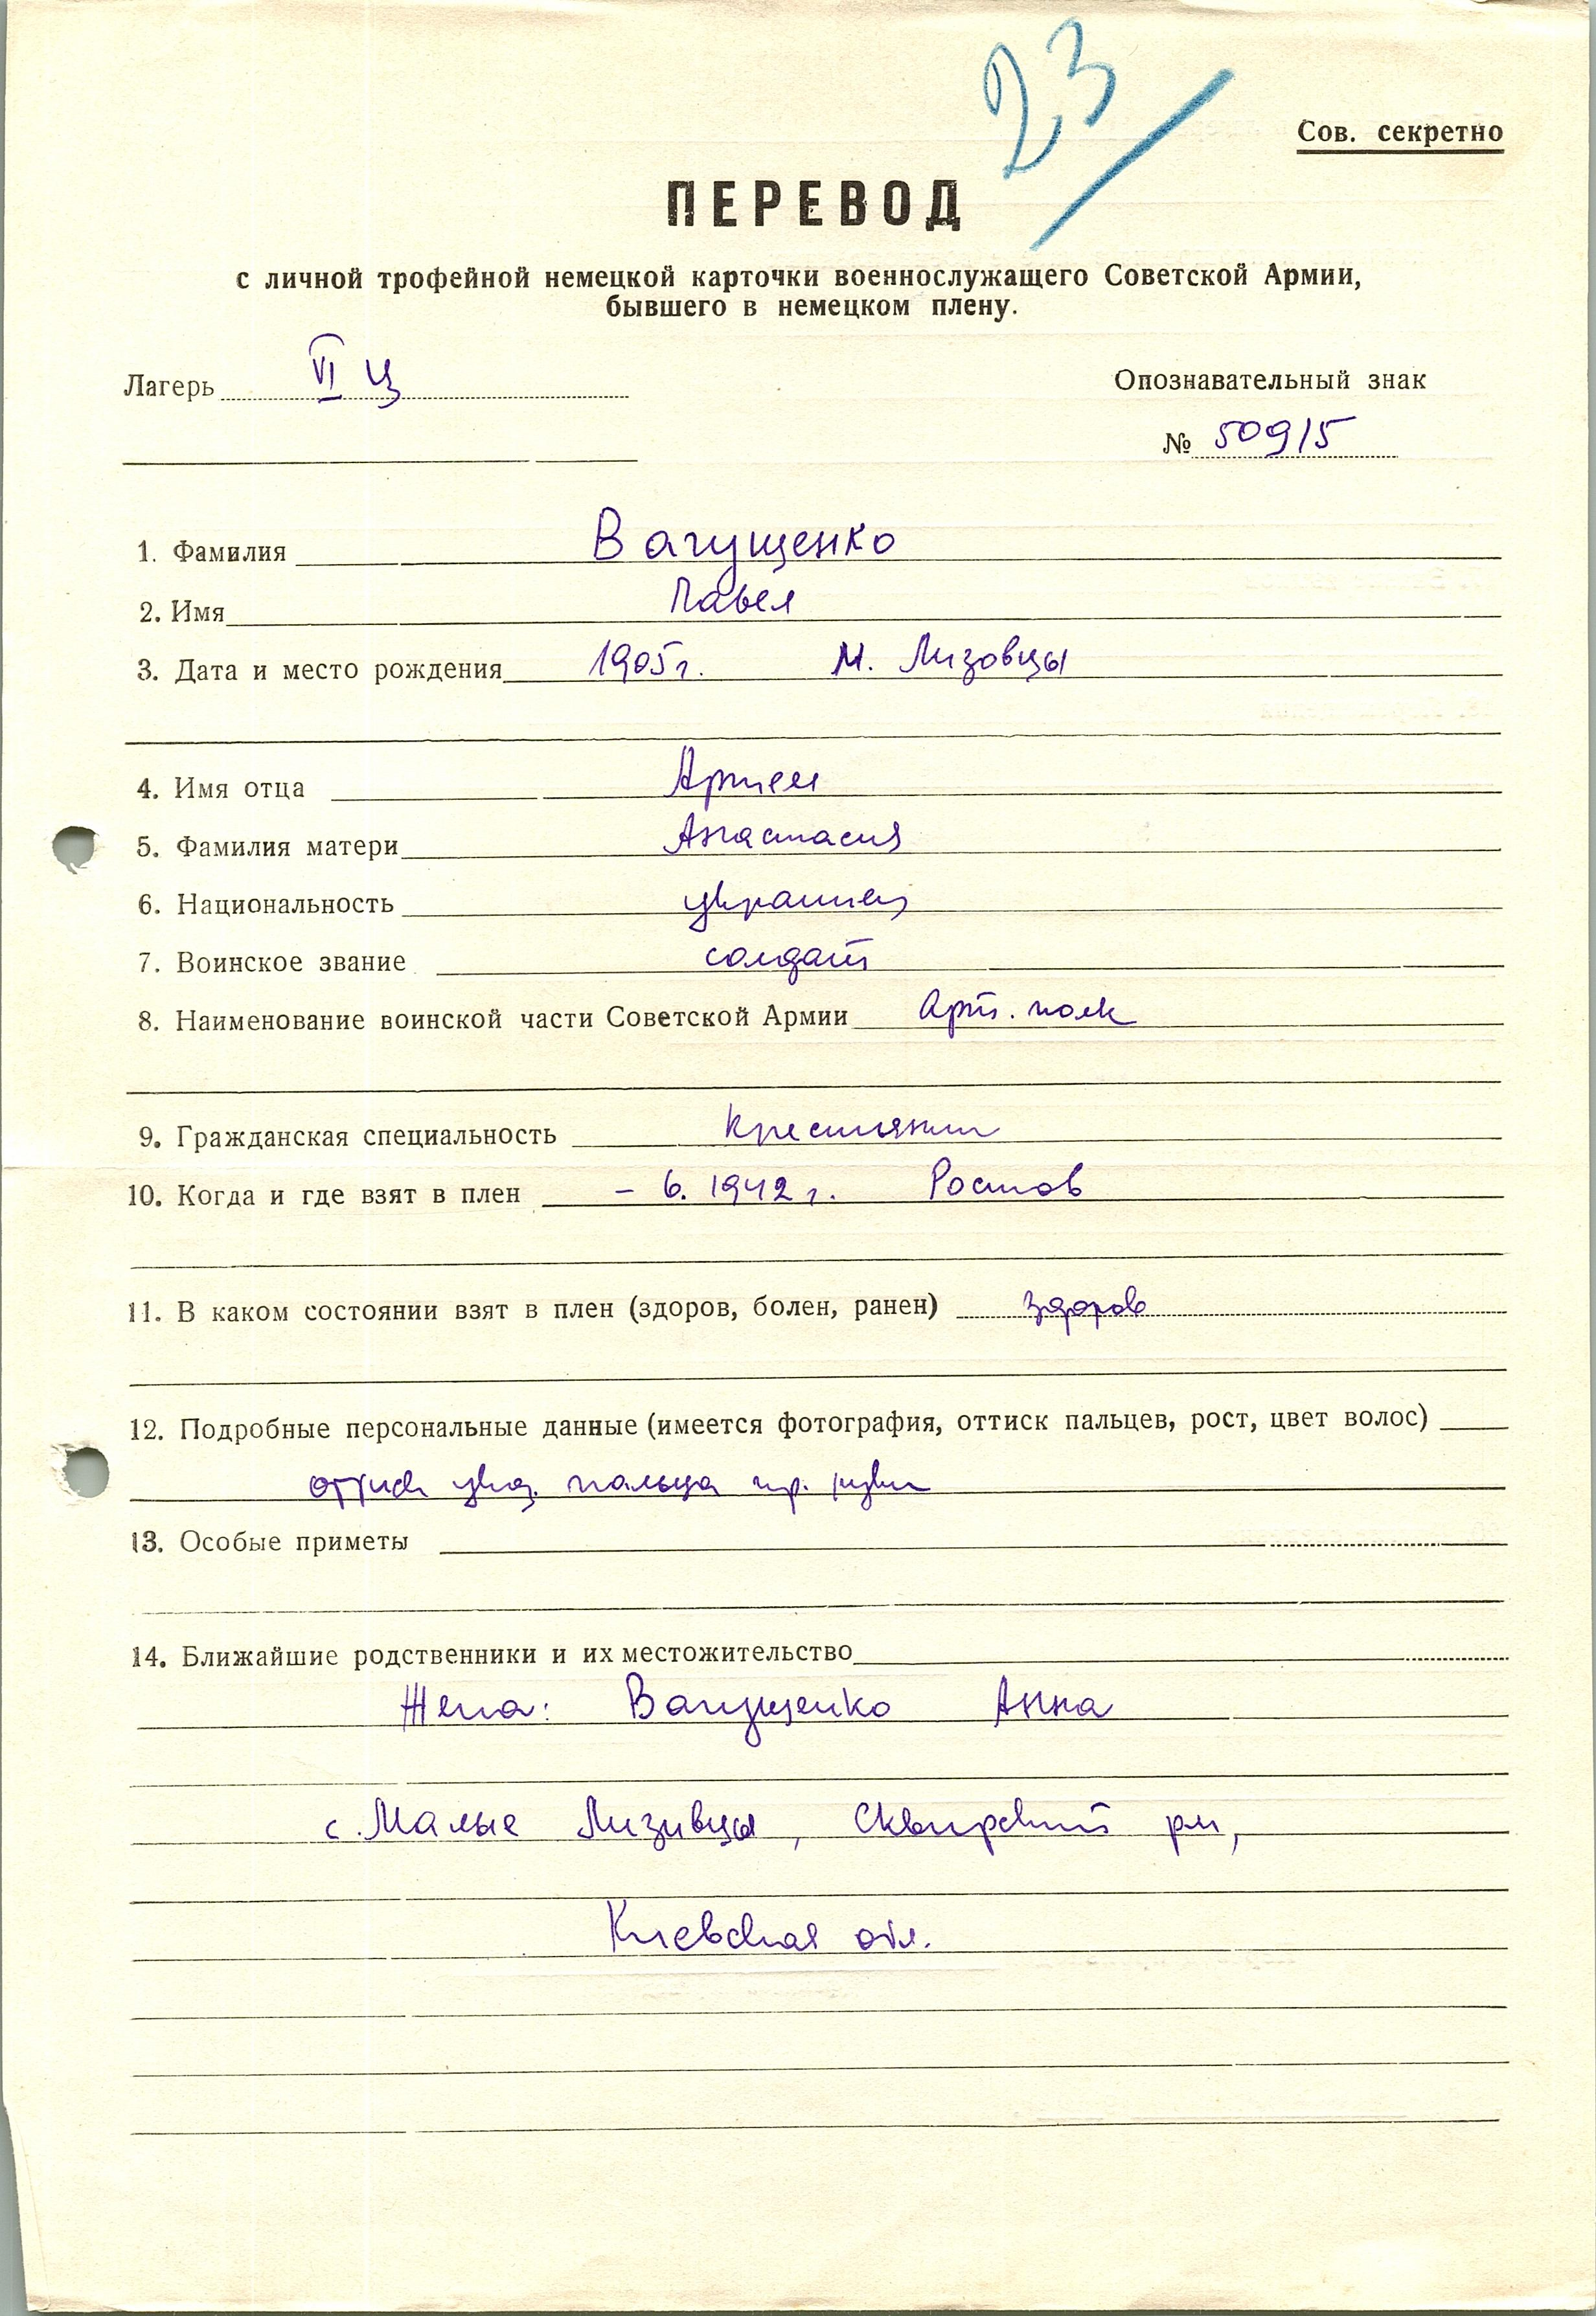 23
Сов. секретно
ПЕРЕВОД
с личной трофейной немецкой карточки военнослужащего Советской Армии,
бывшего в немецком плену.
Лагерь VI Ц
Опознавательный знак
№ 50915
1. Фамилия Вагущенко
2. Имя Павел
3. Дата и место рождения 1905г. М. Лизовцы
4. Имя отца Артем
5. Фамилия матери Анастасия
6. Национальность украинец
7. Воинское звание солдат
8. Наименование воинской части Советской Армии Арт. полк
9. Гражданская специальность крестьянин
10. Когда и где взят в плен - 6. 1942 г. Ростов
11. В каком состоянии взят в плен (здоров, болен, ранен) здоров
12. Подробные персональные данные (имеется фотография, оттиск пальцев, рост, цвет волос)
оттиск указ. пальца пр. руки
13. Особые приметы
14. Ближайшие родственники и их местожительство
Жена: Вагущенко Анна
с. Малые Лизивцы, Сквирский рн,
Киевская обл.